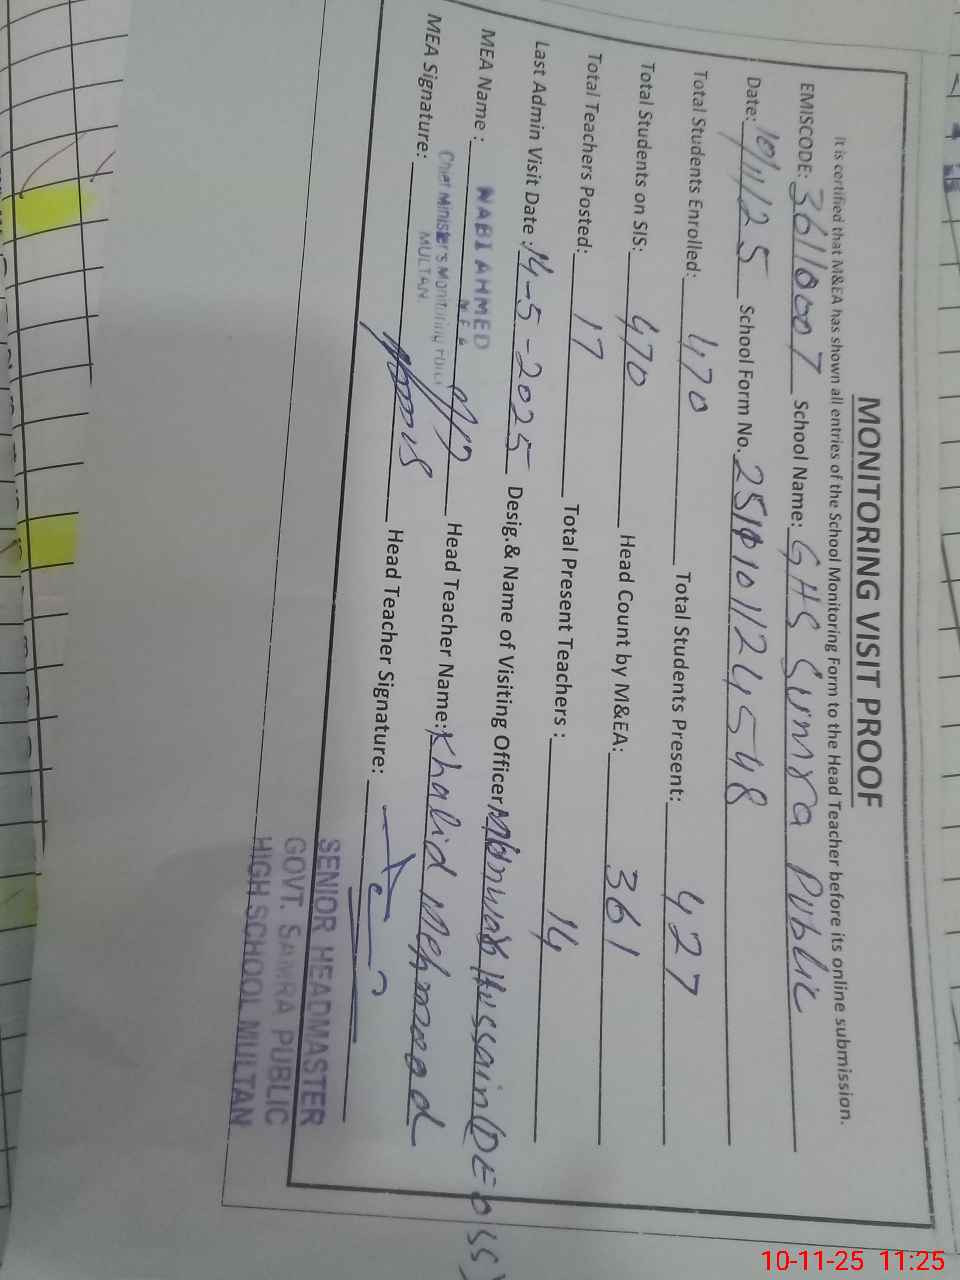 MONITORING VISIT PROOF
It is certified that M&EA has shown all entries of the School Monitoring Form to the Head Teacher before its online submission.
EMISCODE: 36110007 School Name: GHS Sumra Public
Date: 10/11/25 School Form No. 25101011124548
Total Students Enrolled: 470 Total Students Present: 427
Total Students on SIS: 470 Head Count by M&EA: 361
Total Teachers Posted: 17 Total Present Teachers: 14
Last Admin Visit Date: 14-5-2025 Desig.& Name of Visiting Officer Hussain (DEO SS)
MEA Name: NABI AHMED Head Teacher Name: Khalid Mehmood
M.E.A
Chief Minister's Monitoring Force
MULTAN
MEA Signature: Head Teacher Signature:
SENIOR HEADMASTER
GOVT. SAMRA PUBLIC
HIGH SCHOOL MULTAN
10-11-25 11:25